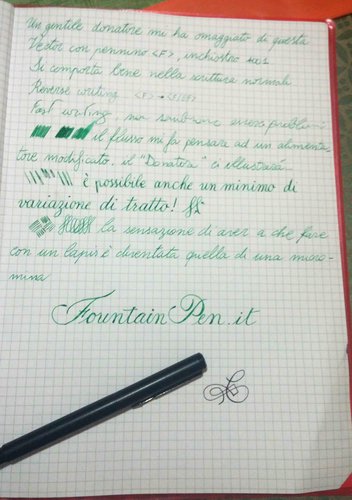 Un gentile donatore mi ha omaggiato di questa
Vector con pennino <F>, inchiostro
Si comporta bene nella scrittura normale
Reverse writing <F> →
Fast writing, non sembrano esserci problemi
il flusso mi fa pensare ad un alimenta-
tore modificato, il "Donatore" ci illustrerà
è possibile anche un minimo di
variazione di tratto!
la sensazione di aver a che fare
con un lapis è diventata quella di una micro-
mina
FountainPen.it